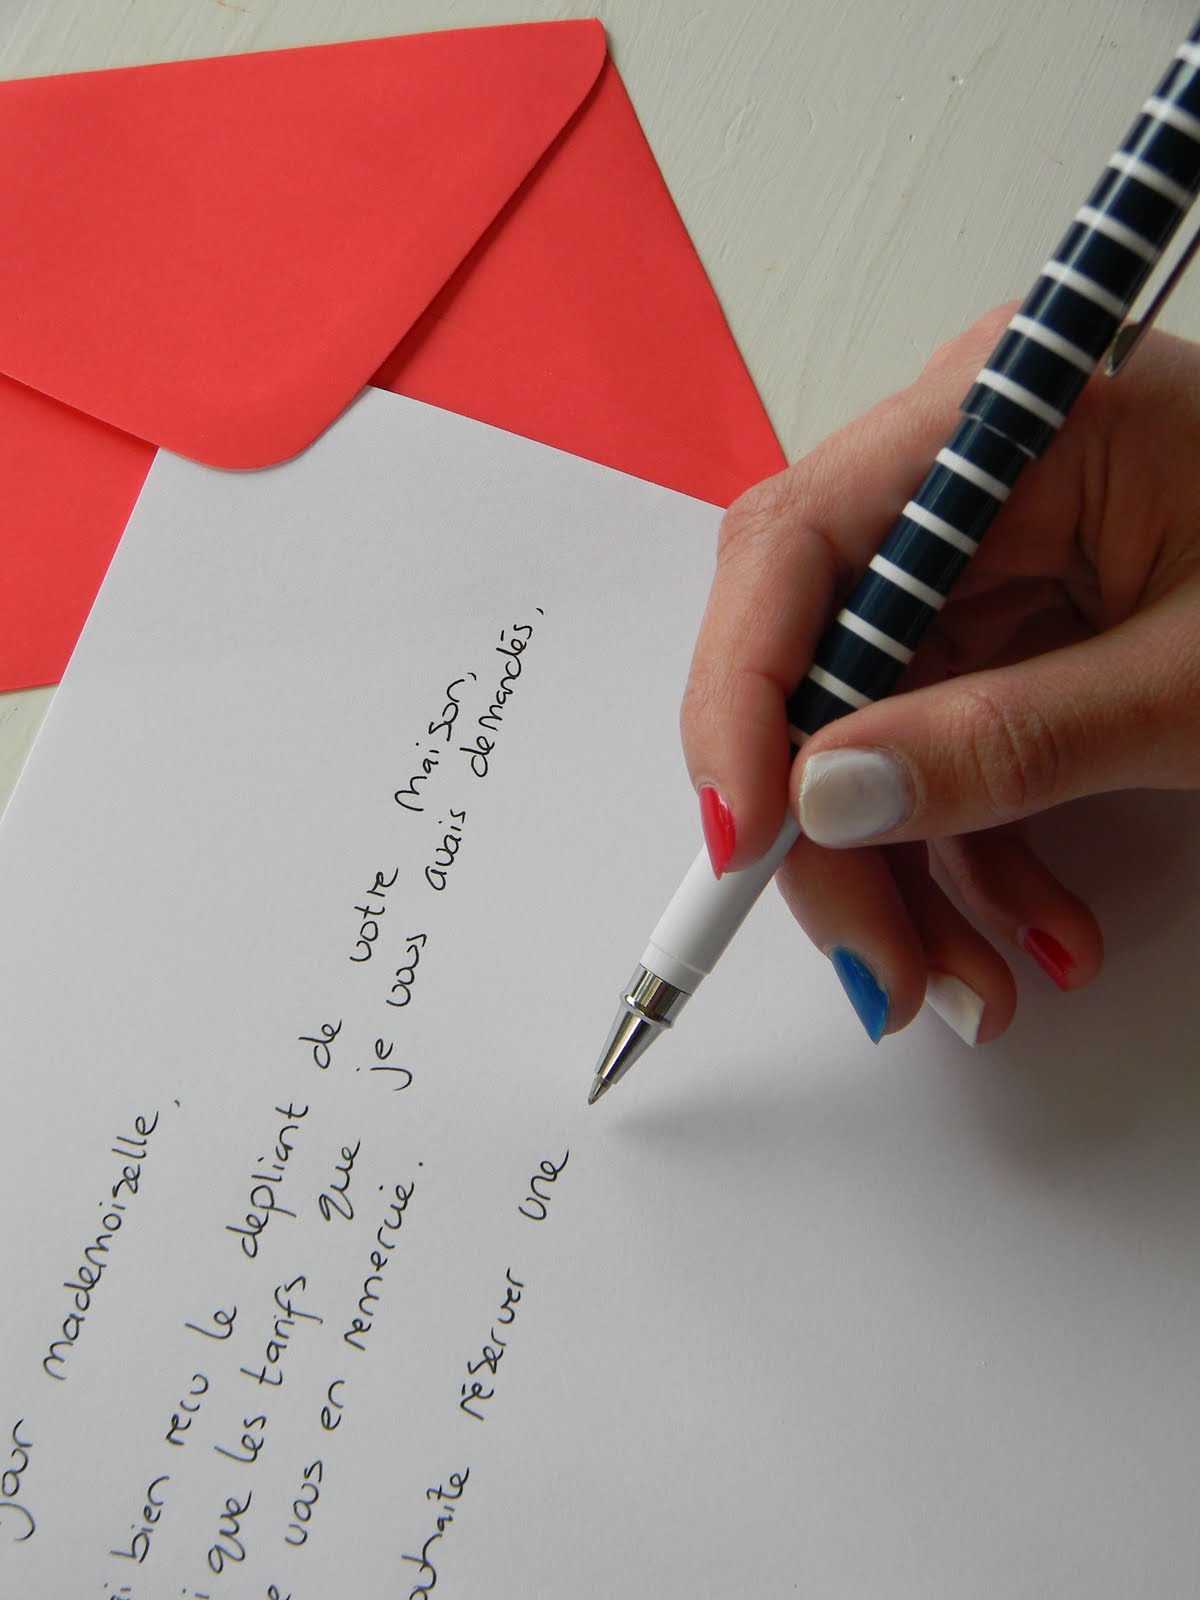 jour mademoiselle,
i bien recu le depliant de votre maison,
i que les tarifs que je vous avais demandés,
e vous en remercie.
ouhaite réserver une